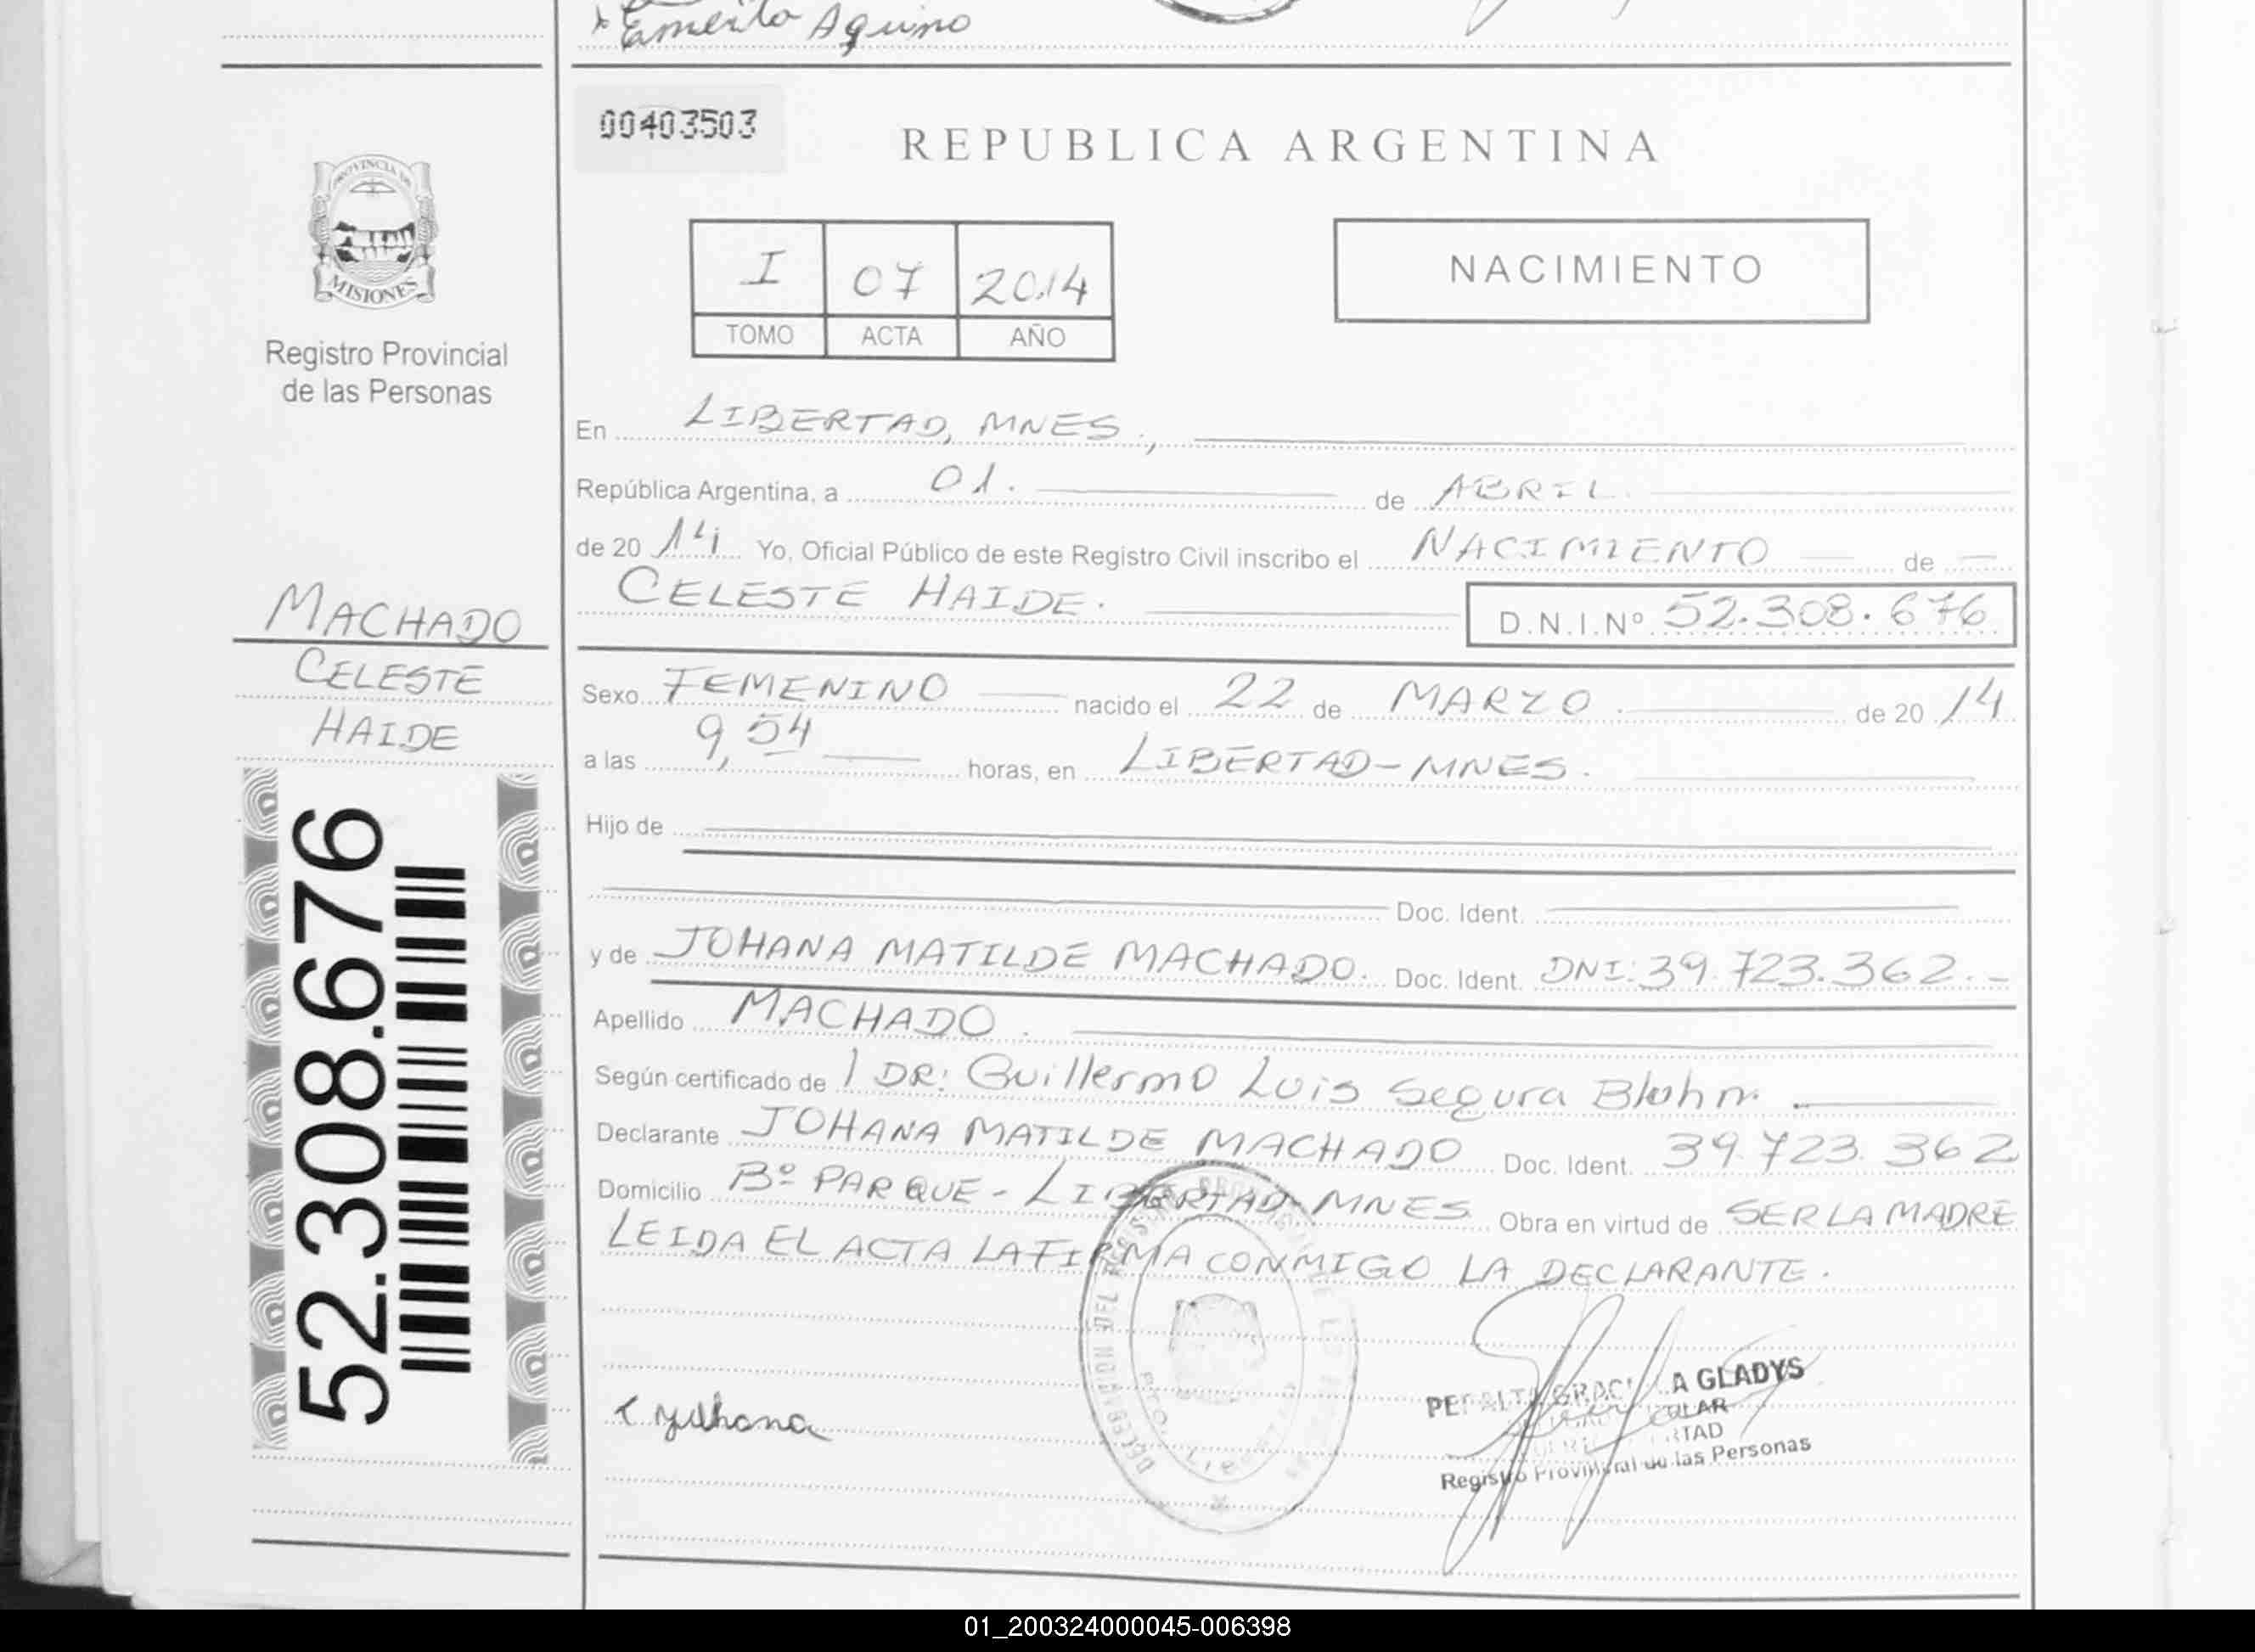 Emerito Aquino
00403503
REPUBLICA ARGENTINA
PROVINCIA DE
MISIONES
Registro Provincial
de las Personas
I 07 2014
TOMO ACTA AÑO
NACIMIENTO
En LIBERTAD, MNES.,
República Argentina, a 01. de ABRIL.
de 20 14 Yo, Oficial Público de este Registro Civil inscribo el NACIMIENTO de
CELESTE HAIDE. D.N.I.Nº 52.308.676
MACHADO
CELESTE
HAIDE
52.308.676
Sexo FEMENINO nacido el 22 de MARZO de 20 14
a las 9,54 horas, en LIBERTAD-MNES.
Hijo de
Doc. Ident.
y de JOHANA MATILDE MACHADO. Doc. Ident. DNI: 39.723.362.-
Apellido MACHADO.
Según certificado de 1 DR: Guillermo Luis Segura Bluhm.
Declarante JOHANA MATILDE MACHADO Doc. Ident. 39.723.362
Domicilio Bº PARQUE - LIBERTAD-MNES Obra en virtud de SER LA MADRE
LEIDA EL ACTA LA FIRMA CONMIGO LA DECLARANTE.
DELEGACION DEL
A GLADYS
Registro Provincial de las Personas
01_200324000045-006398